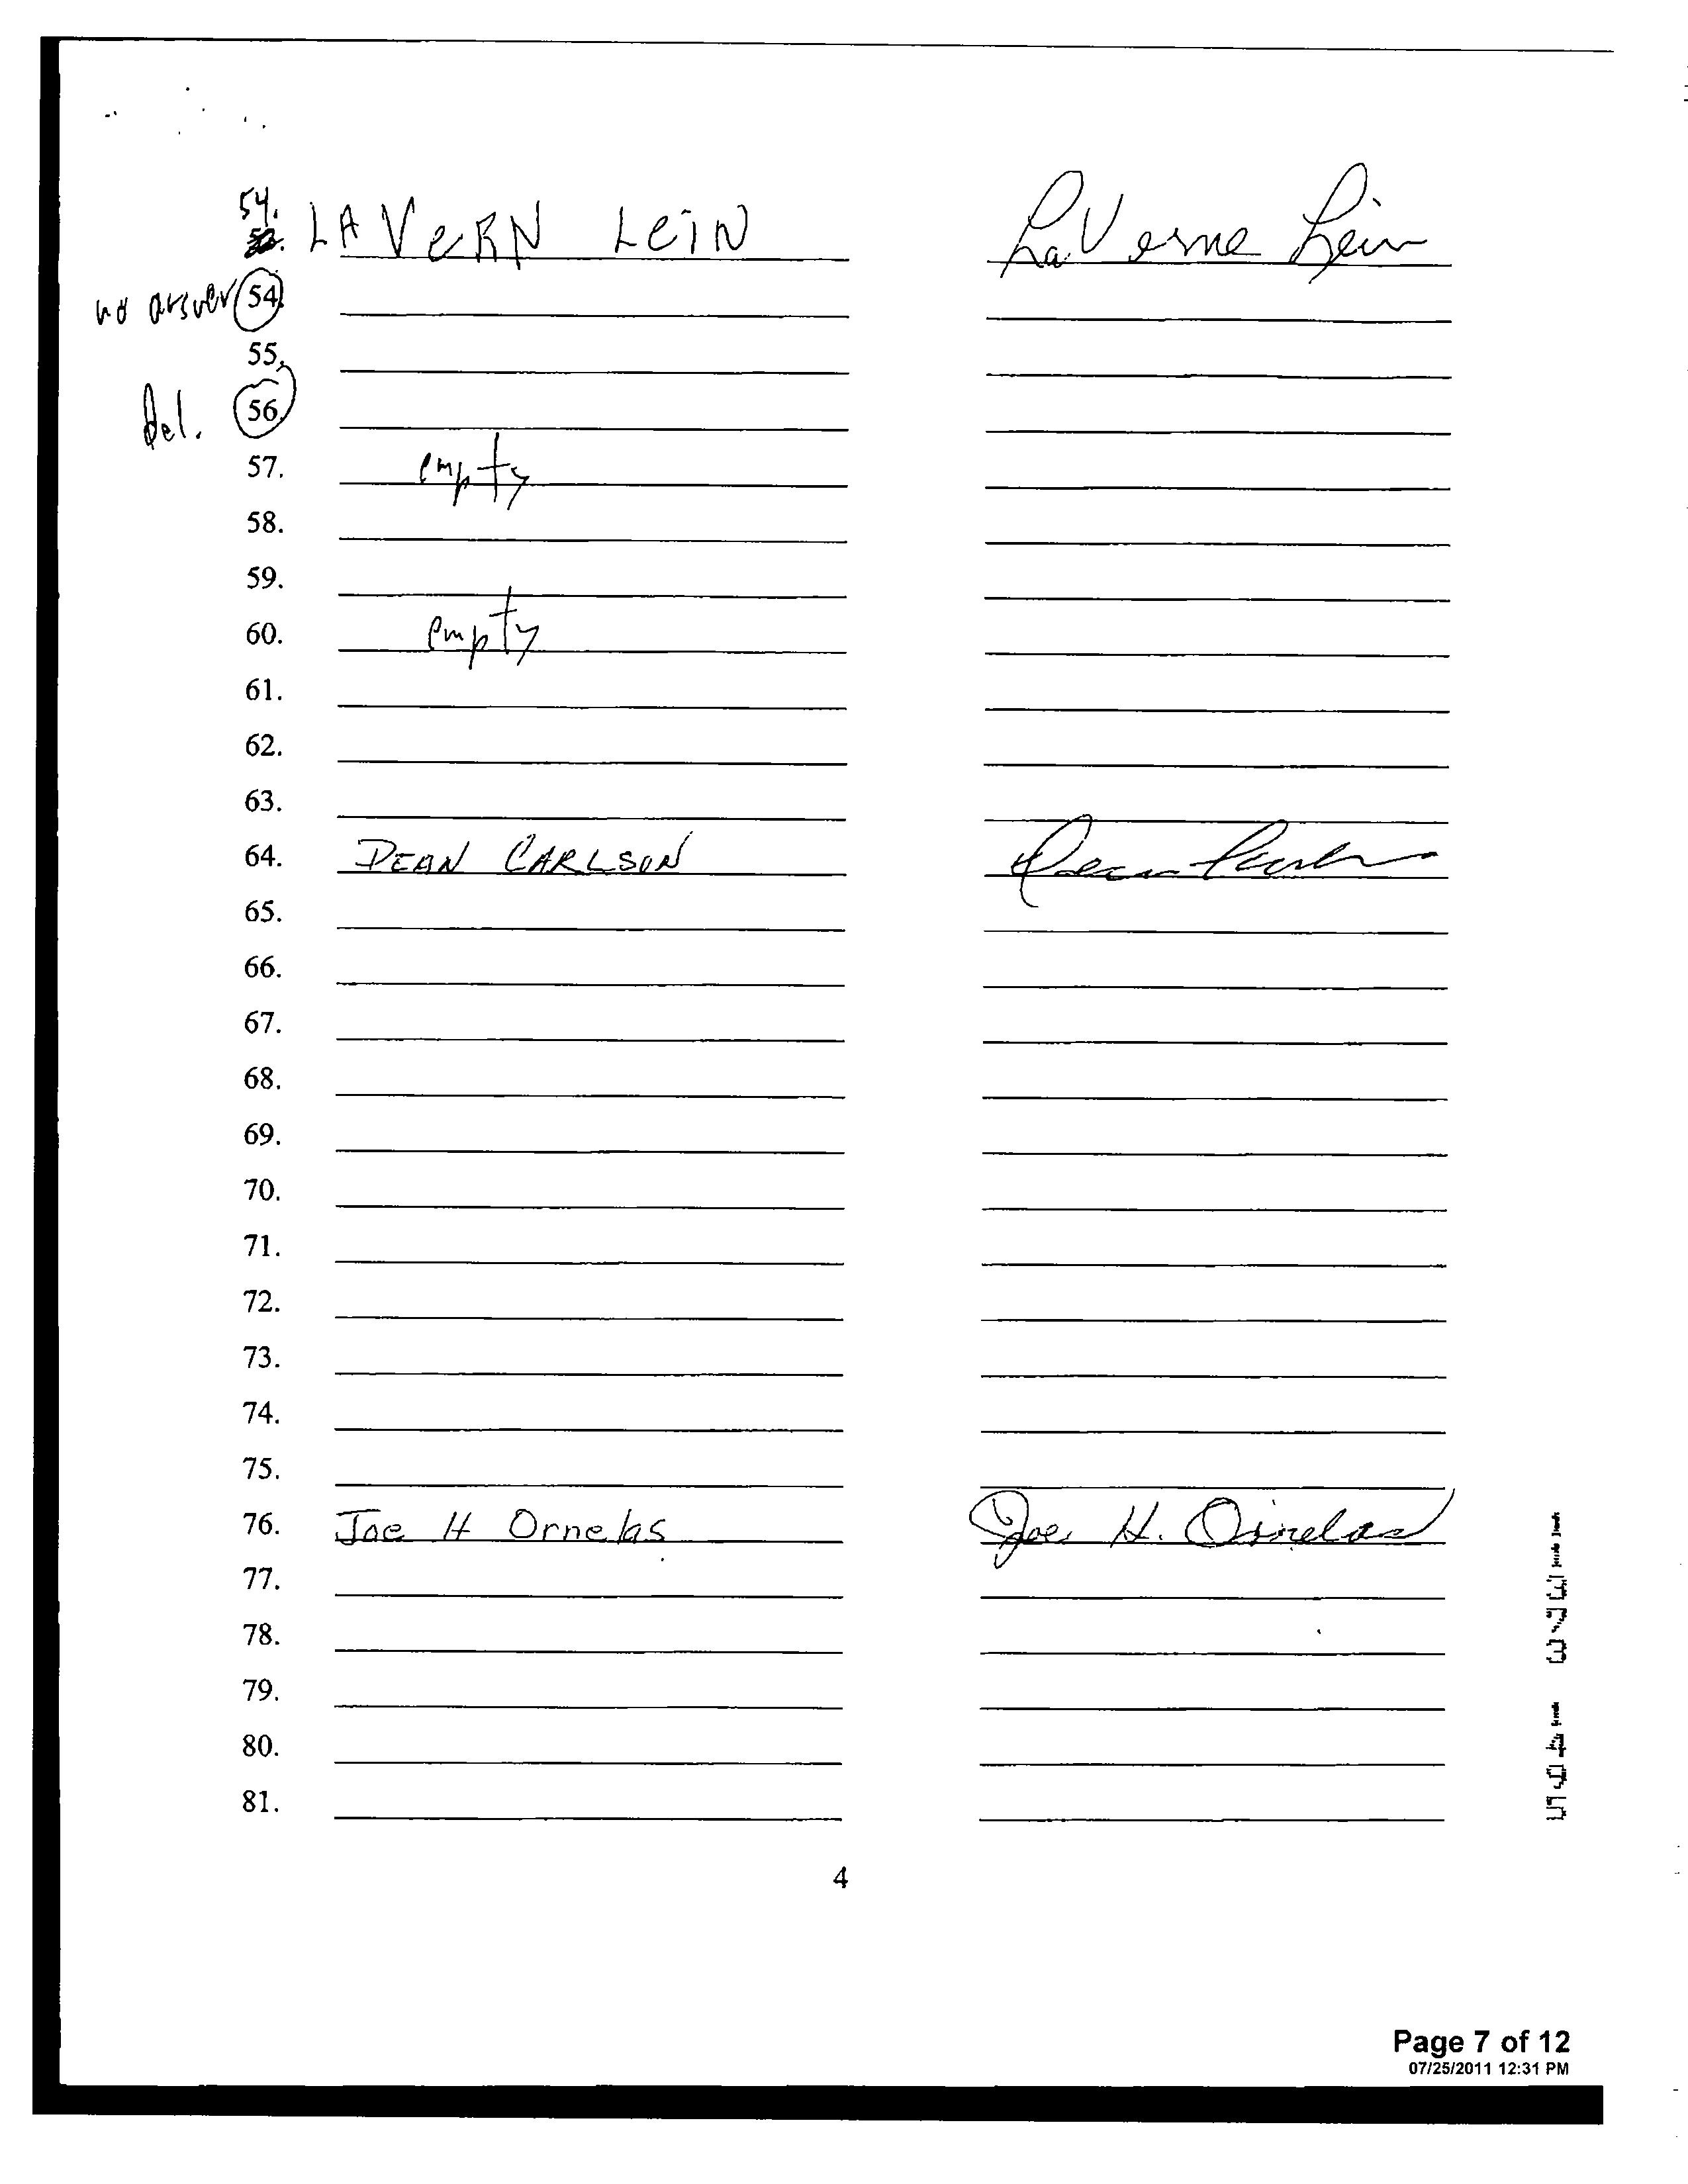 54.
LAVERN LEIN LaVerne Lein
no answer 54.
55.
Del. 56.
57. empty
58.
59.
60. empty
61.
62.
63.
64. DEAN CARLSON Dean Carlson
65.
66.
67.
68.
69.
70.
71.
72.
73.
74.
75.
76. Joe H Ornelas Joe H. Ornelas
77.
78.
79.
80.
81.
4
Page 7 of 12
07/25/2011 12:31 PM